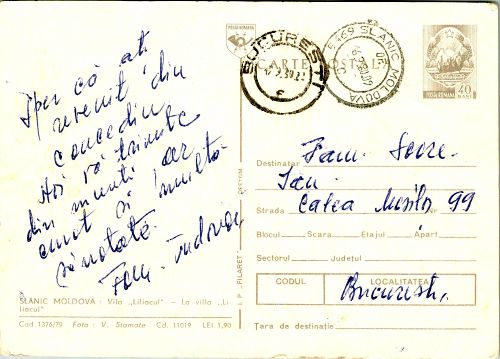 Sper că ați
revenit din
concediu
Noi vă trimitem
din munți aer
curat și multă
sănătate.
Fam.
SLĂNIC MOLDOVA : Vila „Liliacul” — La villa „Li-
liacul”
Cod 1376/79 Foto : V. Stamate Cd. 11019 LEI 1,90
C.P. FILARET
POSTA ROMANA
CARTE POSTALA
BUCURESTI
5469 SLANIC MOLDOVA
POSTA ROMANA 40 BANI
Destinatar Fam.
Ian
Strada Calea Moșilor 99
Blocul Scara Etajul Apart.
Sectorul Județul
CODUL LOCALITATEA
București
Țara de destinație